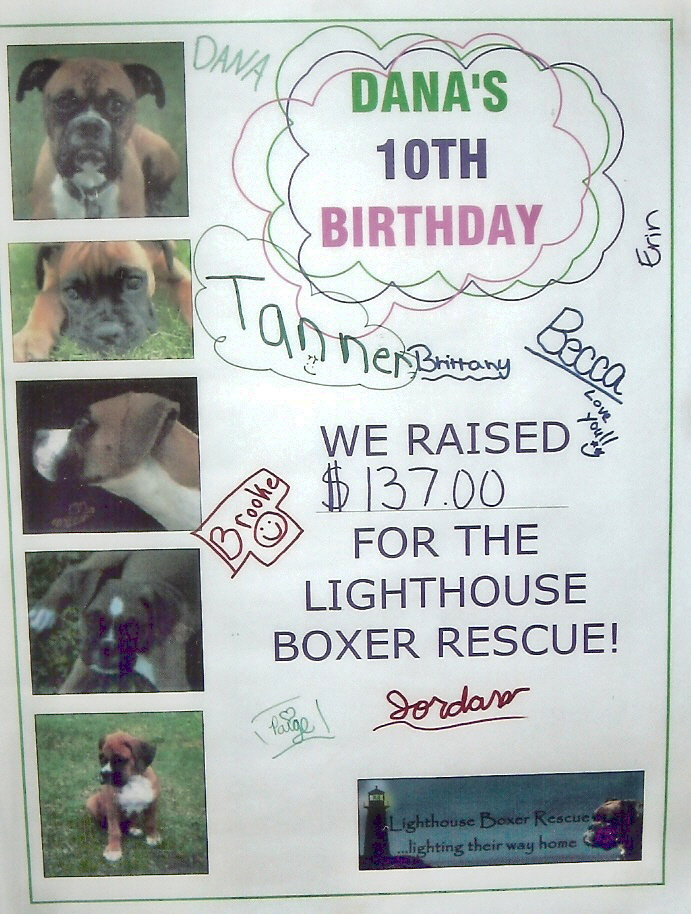 DANA
DANA'S
10TH
BIRTHDAY
Erin
Tanner
Brittany
Becca
Love
You!!
WE RAISED
$137.00
Brooke
FOR THE
LIGHTHOUSE
BOXER RESCUE!
Paige!
Jordan
Lighthouse Boxer Rescue
...lighting their way home